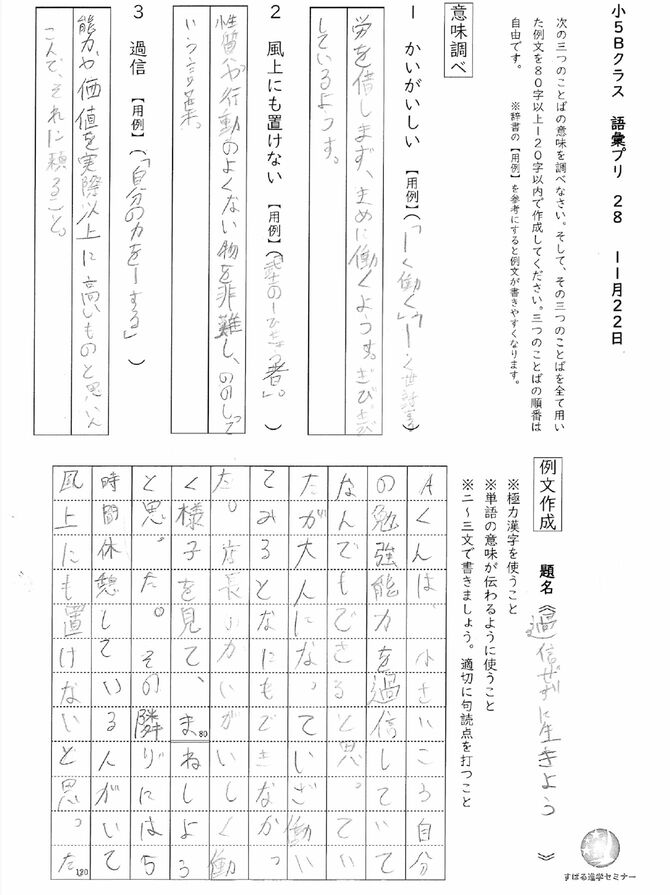 小5Bクラス 語彙プリ 28 11月22日
次の三つのことばの意味を調べなさい。そして、その三つのことばを全て用い
た例文を80字以上120字以内で作成してください。三つのことばの順番は
自由です。 ※辞書の【用例】を参考にすると例文が書きやすくなります。
意味調べ
1 かいがいしい 【用例】(「ーく働く」
労を惜しまず、まめに働くようす。
しているようす。
2 風上にも置けない 【用例】(武士のー者」。)
性質や行動のよくない物を非難し、ののしって
いう言葉。
3 過信 【用例】(「自分の力をーする」)
能力や価値を実際以上に高いものと思いん
こんで、それに頼ること。
例文作成 題名《過信せずに生きよう》
※極力漢字を使うこと
※単語の意味が伝わるように使うこと
※二〜三文で書きましょう。適切に句読点を打つこと
Aくんは、小さいころ自分
の勉強能力を過信していて
なんでもできると思っていて
たが大人になっていざ働い
てみるとなにもできなかっ
た。店長がかいがいしく働
く様子を見て、まねしよう
と思った。その隣りには5
時間休憩している人がいて
風上にも置けないと思った
80
120
すばる進学セミナー